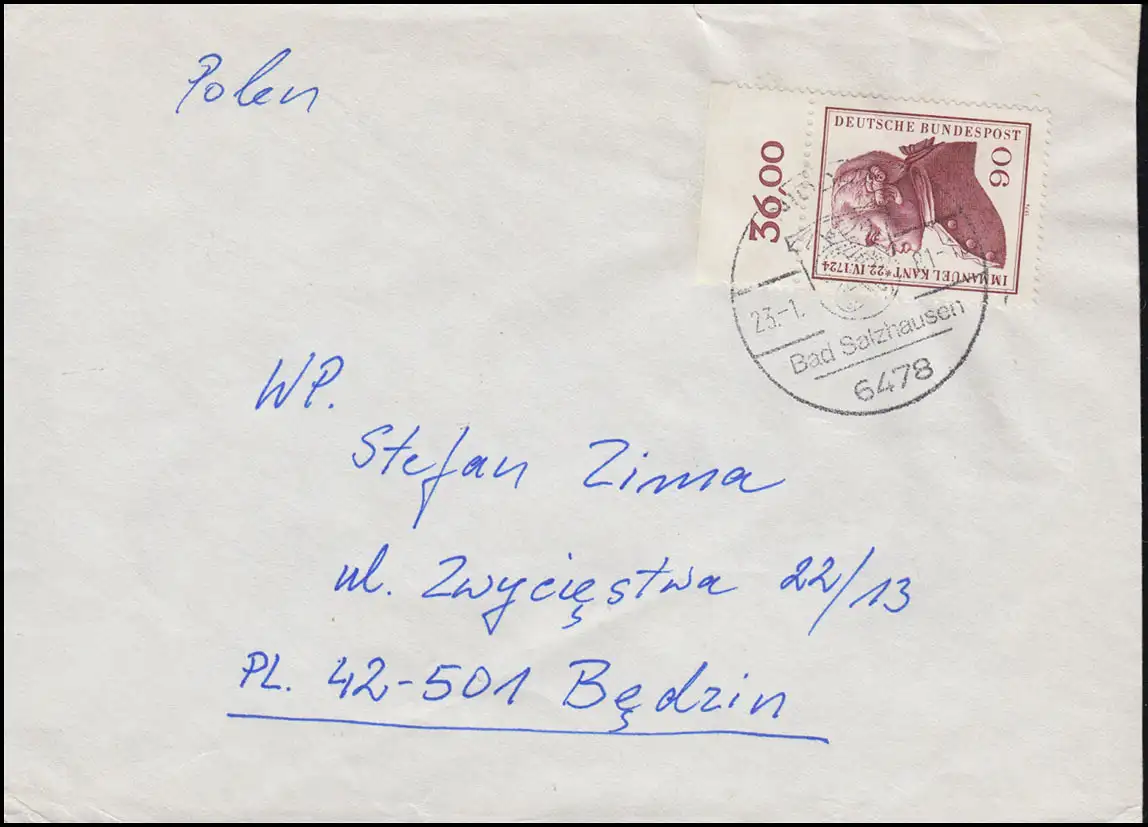 Polen
36,00
DEUTSCHE BUNDESPOST
90
IMMANUEL KANT * 22.IV.1724
23.-1.
Bad Salzhausen
6478
WP.
Stefan Zima
ul. Zwycięstwa 22/13
PL. 42-501 Będzin